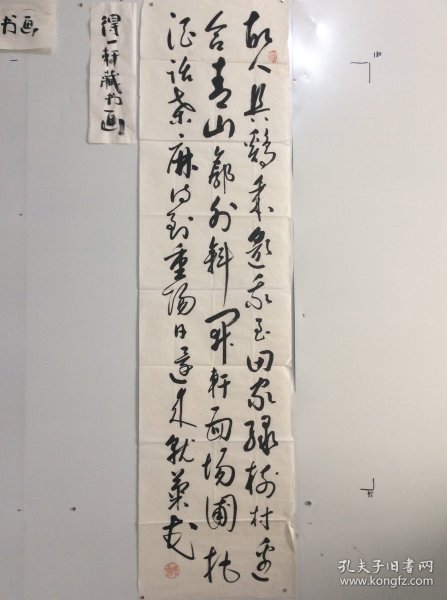 故人具鸡黍邀我至田家绿树村边
合青山郭外斜开轩面场圃把
酒话桑麻待到重阳日还来就菊花
得一轩藏书画
书画
孔夫子旧书网
www.kongfz.com